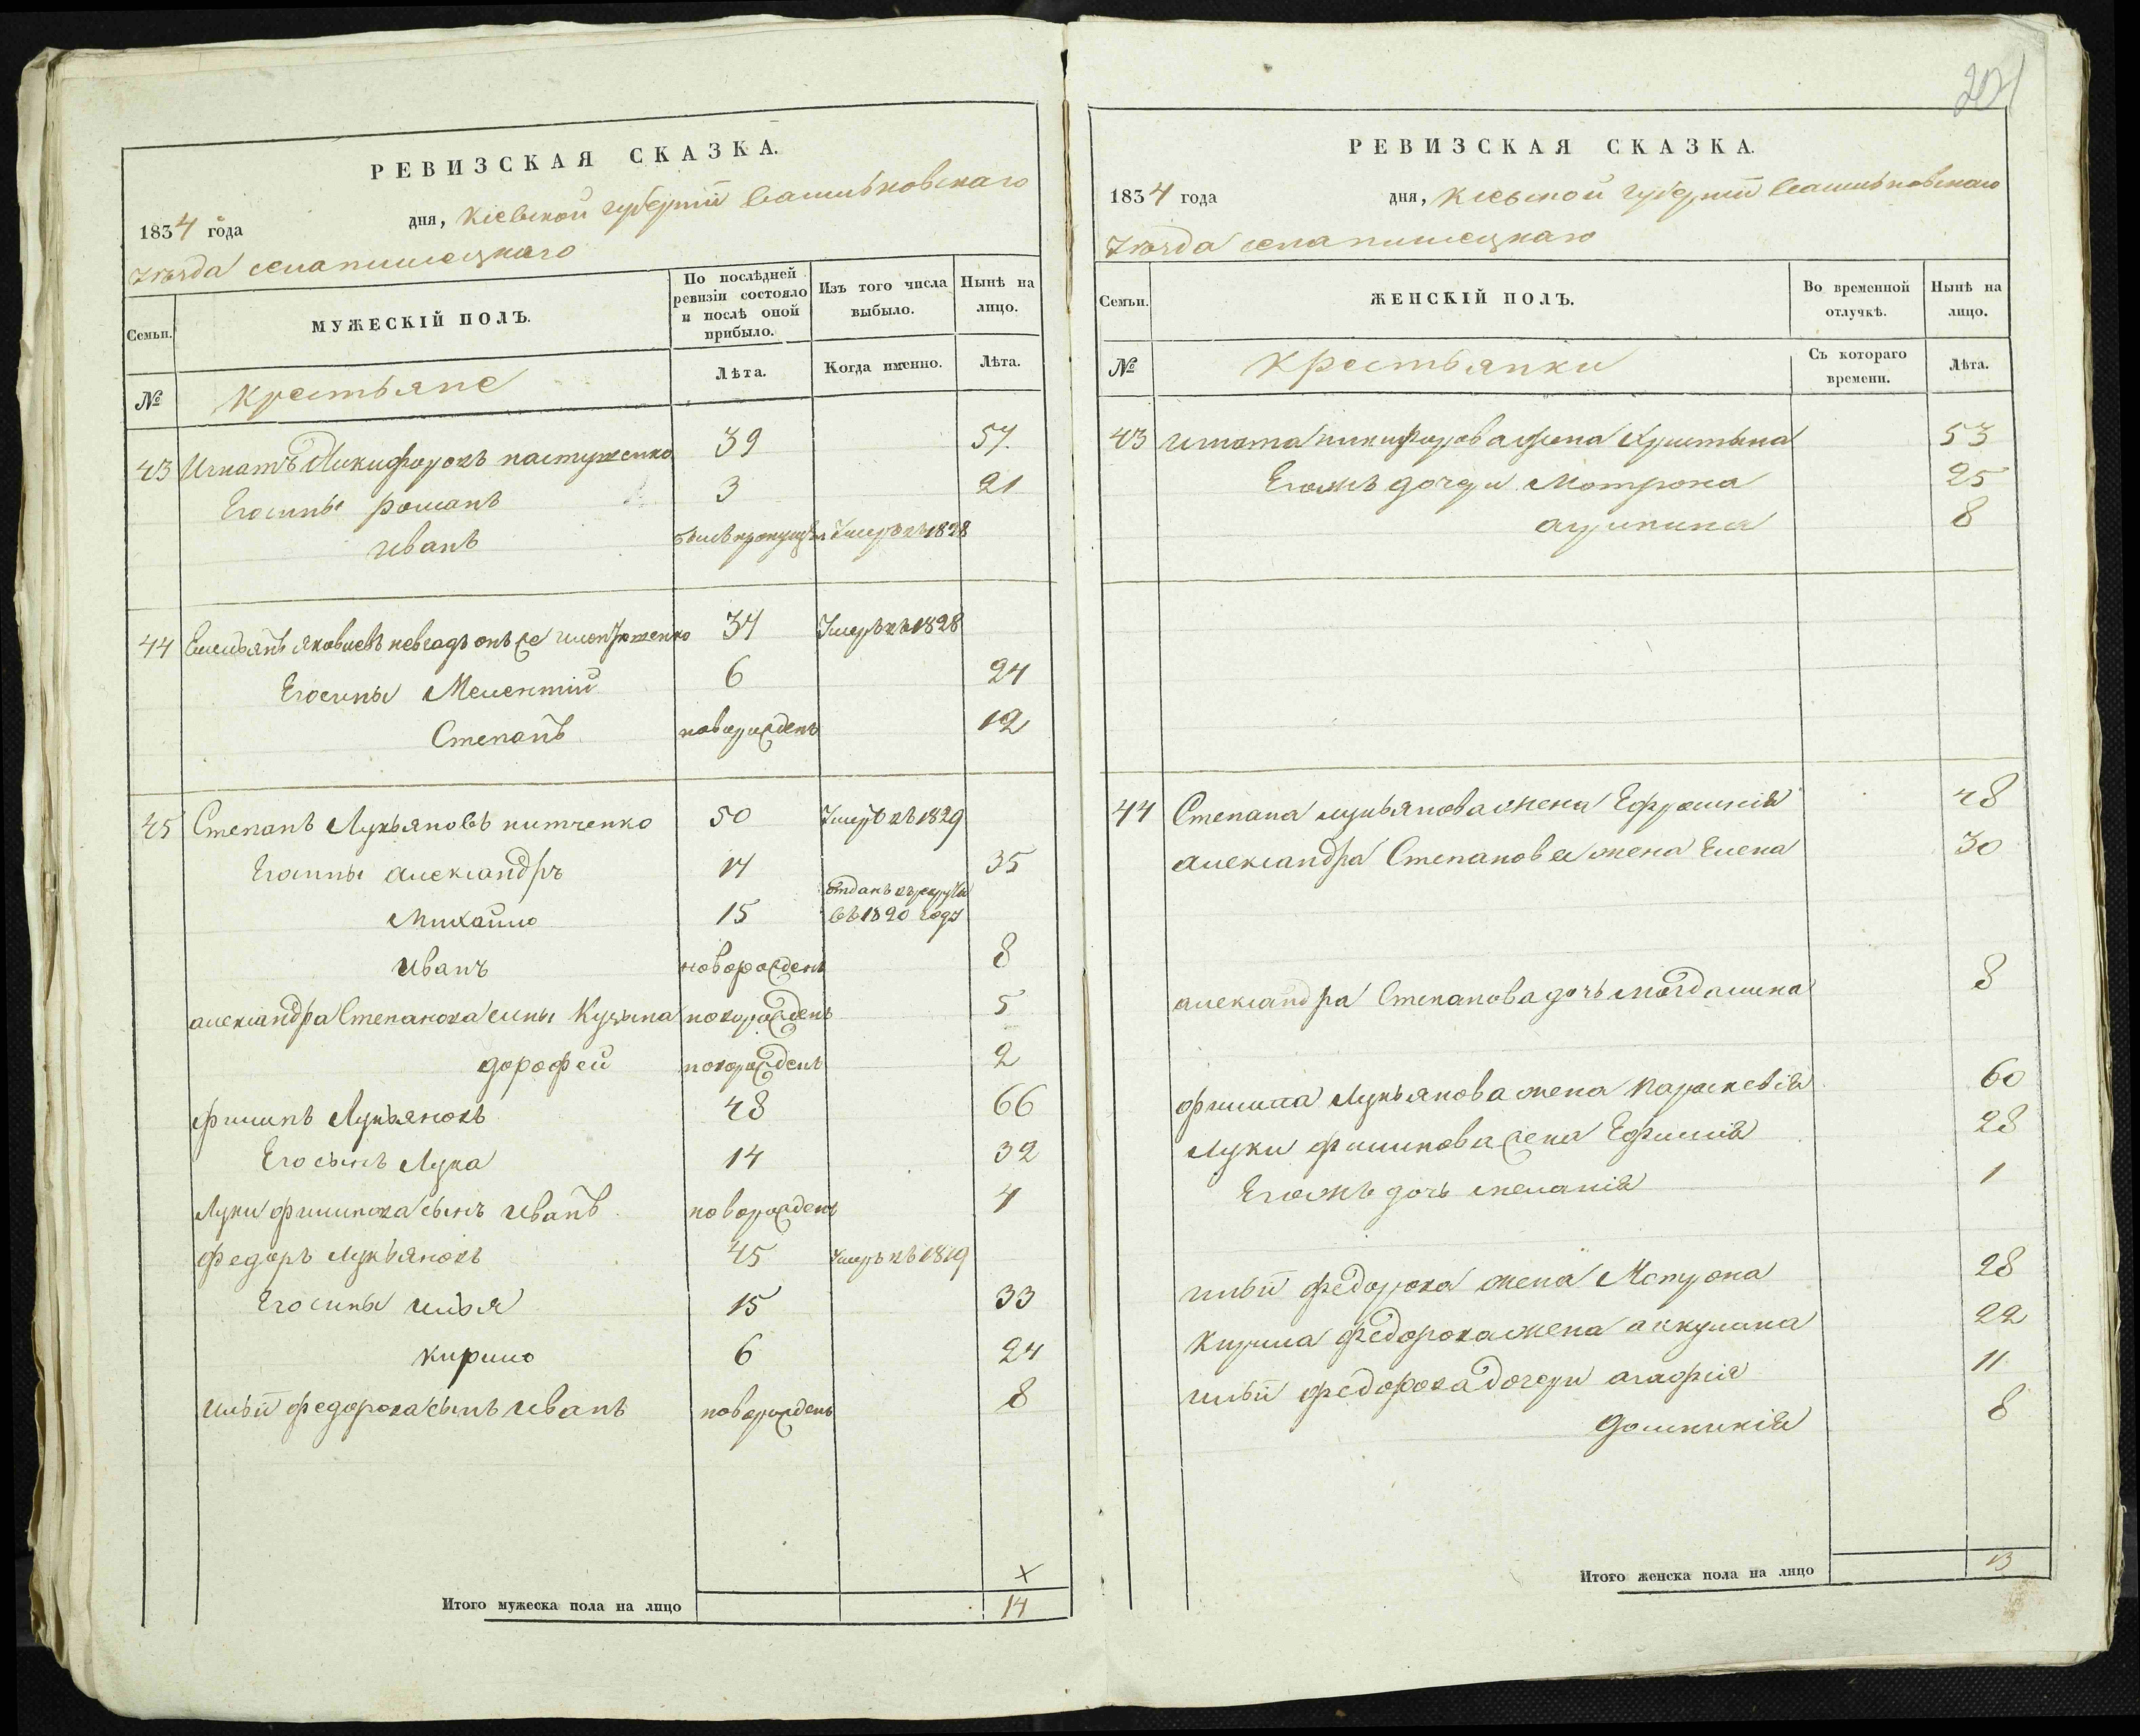 РЕВИЗСКАЯ СКАЗКА.
1834 года дня, Кіевской губерніи Васильковскаго
Уѣзда села
Семьи.
МУЖЕСКІЙ ПОЛЪ.
По послѣдней ревизіи состояло и послѣ оной прибыло.
Изъ того числа выбыло.
Нынѣ на лицо.
№ Крестьяне
Лѣта.
Когда именно.
Лѣта.
43 Игнатъ Никифоровъ пастушенко 39 57
Его сыны романъ 3 21
иванъ Умеръ въ 1828
44 Емельянъ Яковлевъ 34 Умеръ въ 1828
Его сыны Мелентій 6 24
Степанъ новорожденъ 12
45 Степанъ Лукьяновъ 50 Умеръ въ 1829
Его сыны александръ 17 35
Михайло 15 Отданъ въ рекруты въ 1820 году
иванъ новорожденъ 8
александра Степанова сыны Кузьма новорожденъ 5
дорофей новорожденъ 2
филипъ Лукьяновъ 48 66
Его сынъ Лука 14 32
Луки филипова сынъ иванъ новорожденъ 4
Федоръ Лукьяновъ 45 Умеръ въ 1819
Его сыны илья 15 33
кирило 6 24
ильи федорова сынъ иванъ новорожденъ 8
Итого мужеска пола на лицо 14
РЕВИЗСКАЯ СКАЗКА.
1834 года дня, Кіевской губерніи Васильковскаго
Уѣзда села
Семьи.
ЖЕНСКІЙ ПОЛЪ.
Во временной отлучкѣ.
Нынѣ на лицо.
№ Крестьянки
Съ котораго времени.
Лѣта.
43 игната никифорова жена Христина 53
Егожъ дочери Мотрона 25
агрипина 8
44 Степана лукьянова жена Ефросинія 48
александра Степанова жена Елена 30
александра Степанова дочь магдалина 8
филипа Лукьянова жена параскевія 60
Луки филипова жена Ефимія 28
Егожъ дочь меланія 1
ильи федорова жена Мотрона 28
кирила федорова жена акулина 22
ильи федорова дочери агафія 11
домникія 8
Итого женска пола на лицо 13